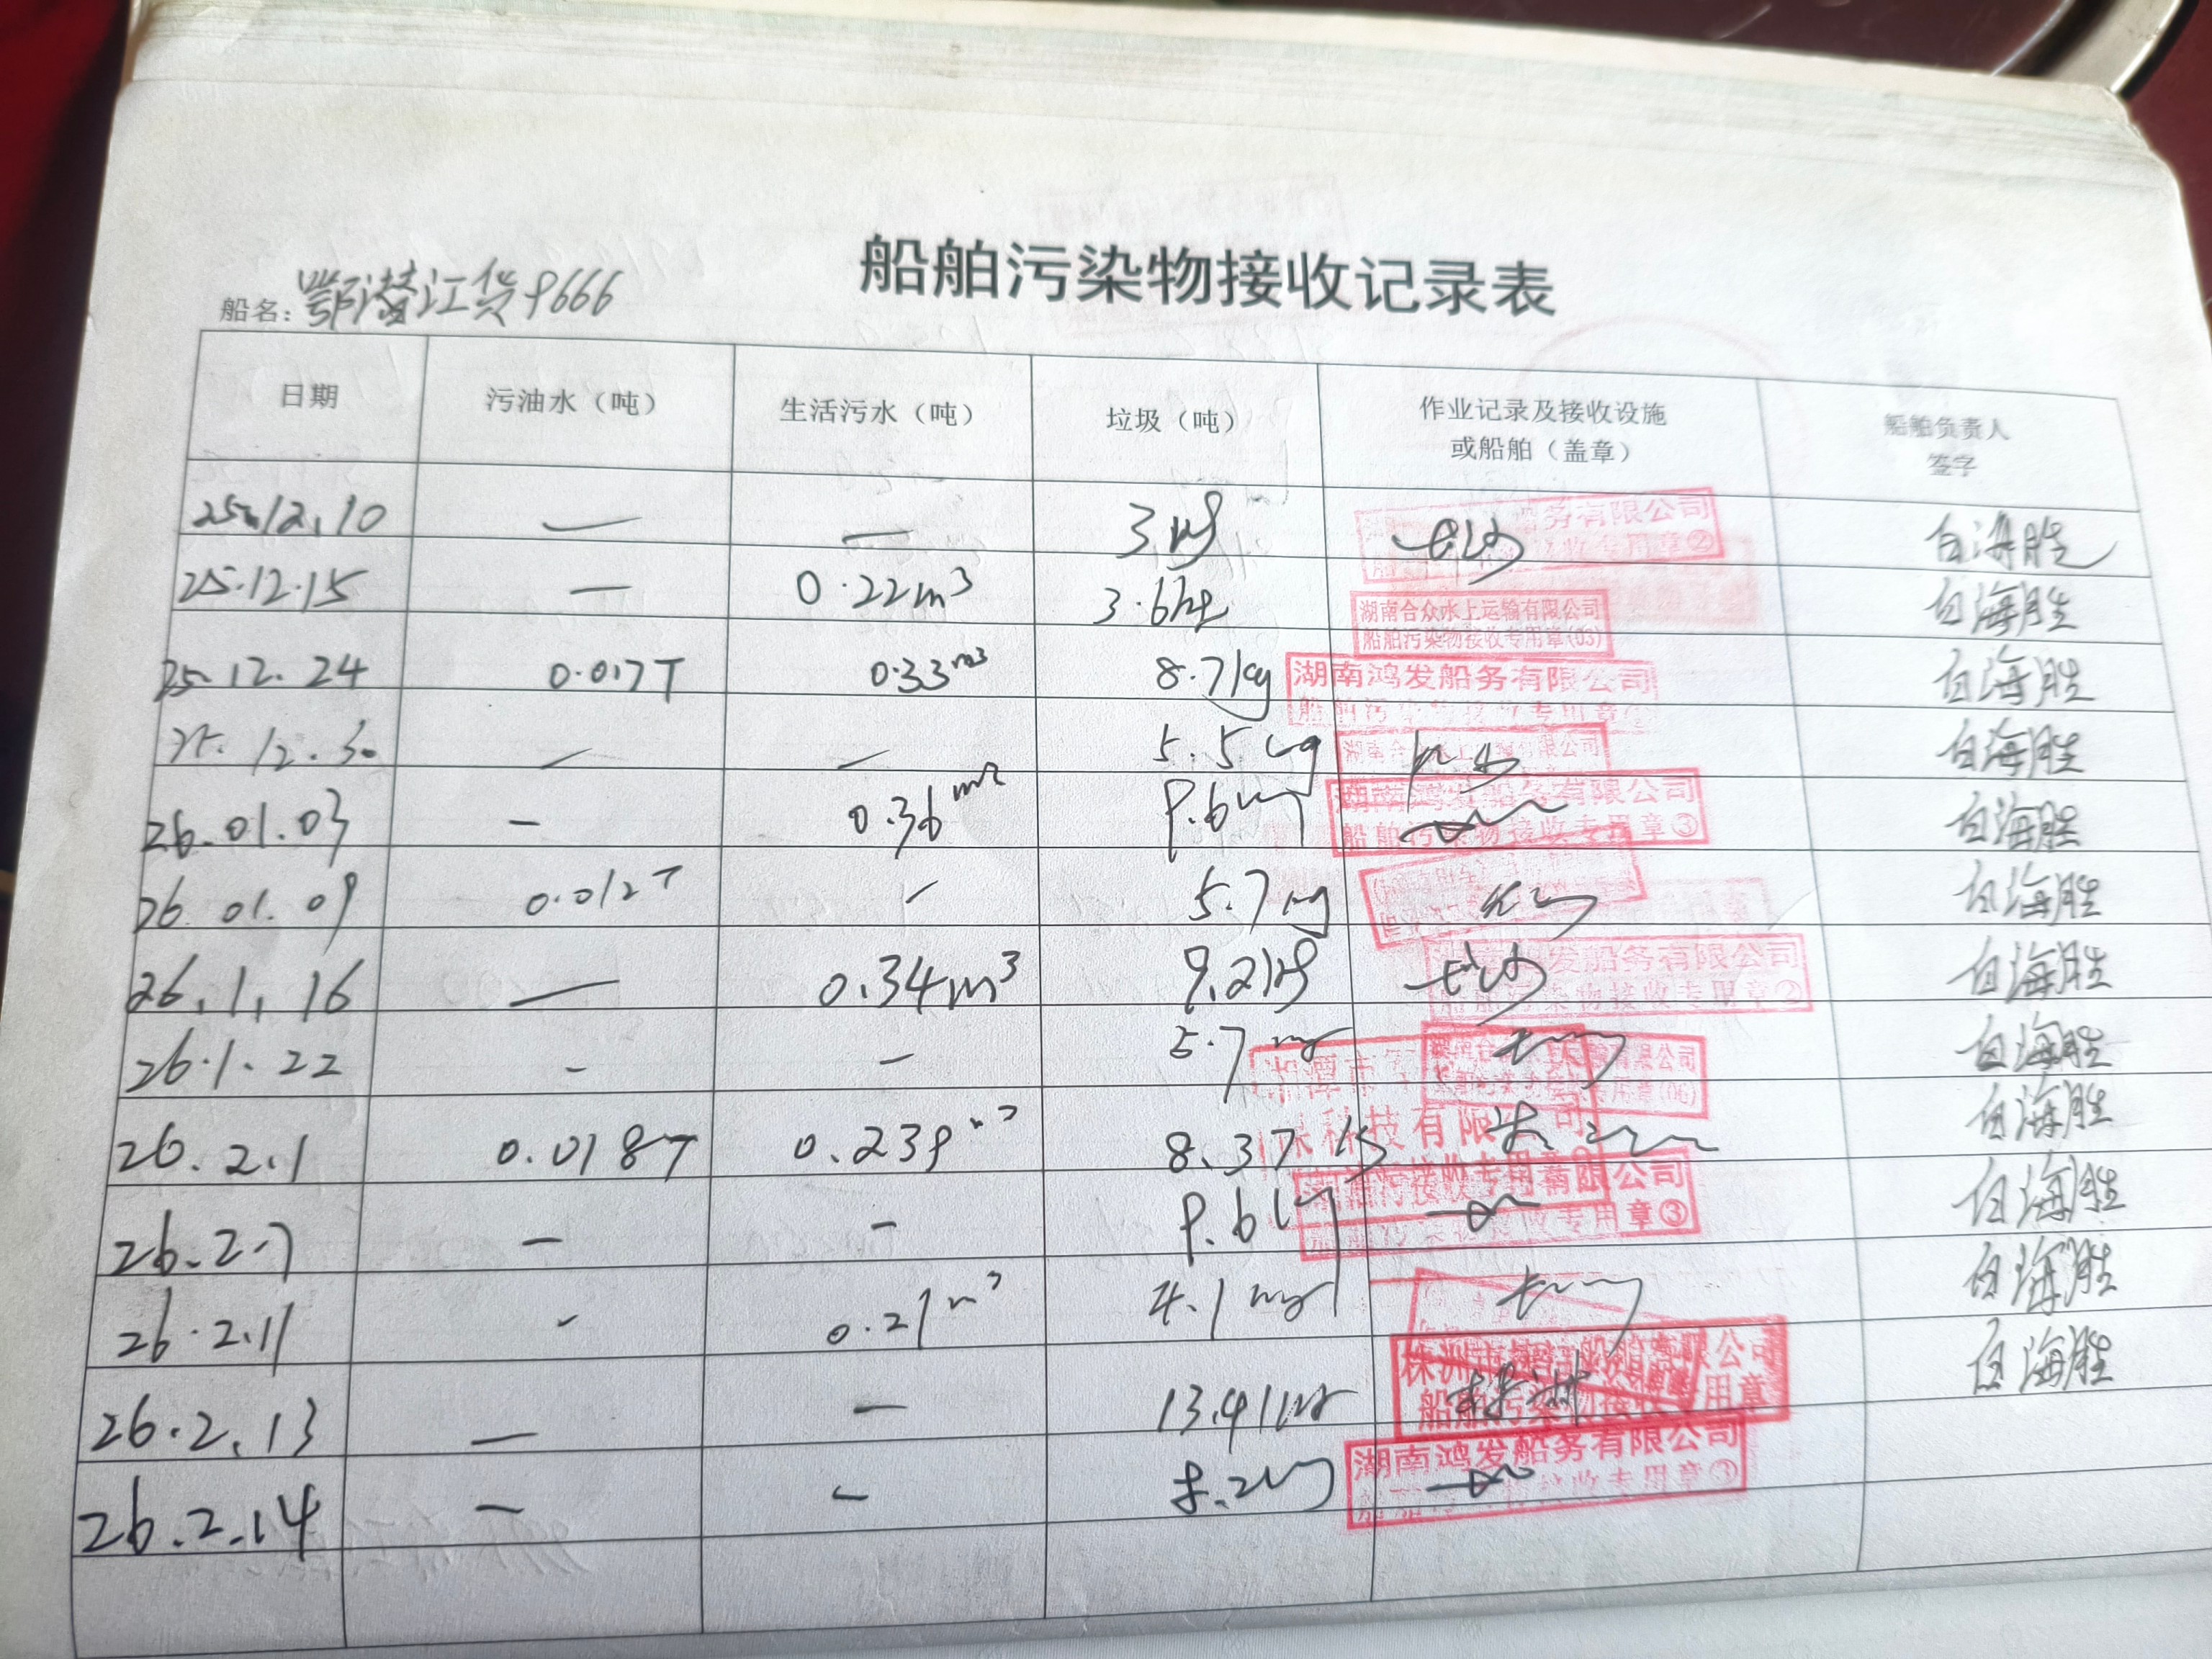 船舶污染物接收记录表
船名：鄂潜江货9666
日期 污油水（吨） 生活污水（吨） 垃圾（吨） 作业记录及接收设施或船舶（盖章） 船舶负责人签字
25.12.10 — — 3kg 长沙 务有限公司 接收专用章② 白海胜
25.12.15 — 0.22m³ 3.6kg 湖南合众水上运输有限公司 船舶污染物接收专用章(03) 白海胜
25.12.24 0.017T 0.33m3 8.7kg 湖南鸿发船务有限公司 船舶污染物接收专用章 白海胜
25.12.30 — — 5.5kg 白海胜
26.01.03 - 0.36 9.6kg 湖南鸿发船务有限公司 船舶污染物接收专用章③ 白海胜
26.01.09 0.012T - 5.7kg 白海胜
26.1.16 — 0.34m³ 9.2kg 长沙 发船务有限公司 船舶污染物接收专用章② 白海胜
26.1.22 - - 5.7kg 有限公司 白海胜
26.2.1 0.018T 0.239m³ 8.37kg 湘潭市 科技有限公司 白海胜
26.2.7 — - 9.6kg 有限公司 专用章③ 白海胜
26.2.11 - 0.21m³ 4.1kg 白海胜
26.2.13 — — 13.41kg 株洲 船舶污染物接收专用章 白海胜
26.2.14 — - 8.2kg 湖南鸿发船务有限公司 接收专用章③